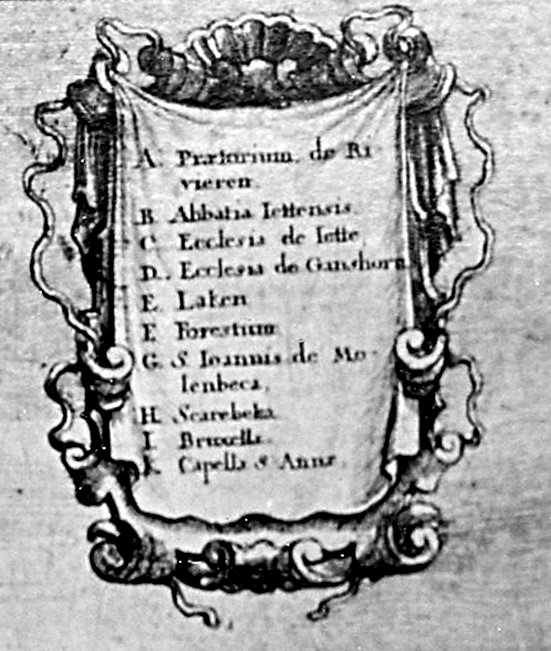 A. Prætorium. de Ri-
vieren.
B. Abbatia Iettensis.
C. Ecclesia de Iette
D. Ecclesia de Ganshorn
E. Laken
F Forestium
G. S Ioannis de Mo-
lenbeca.
H. Scarebeka
I. Bruxella.
K. Capella S Annæ.